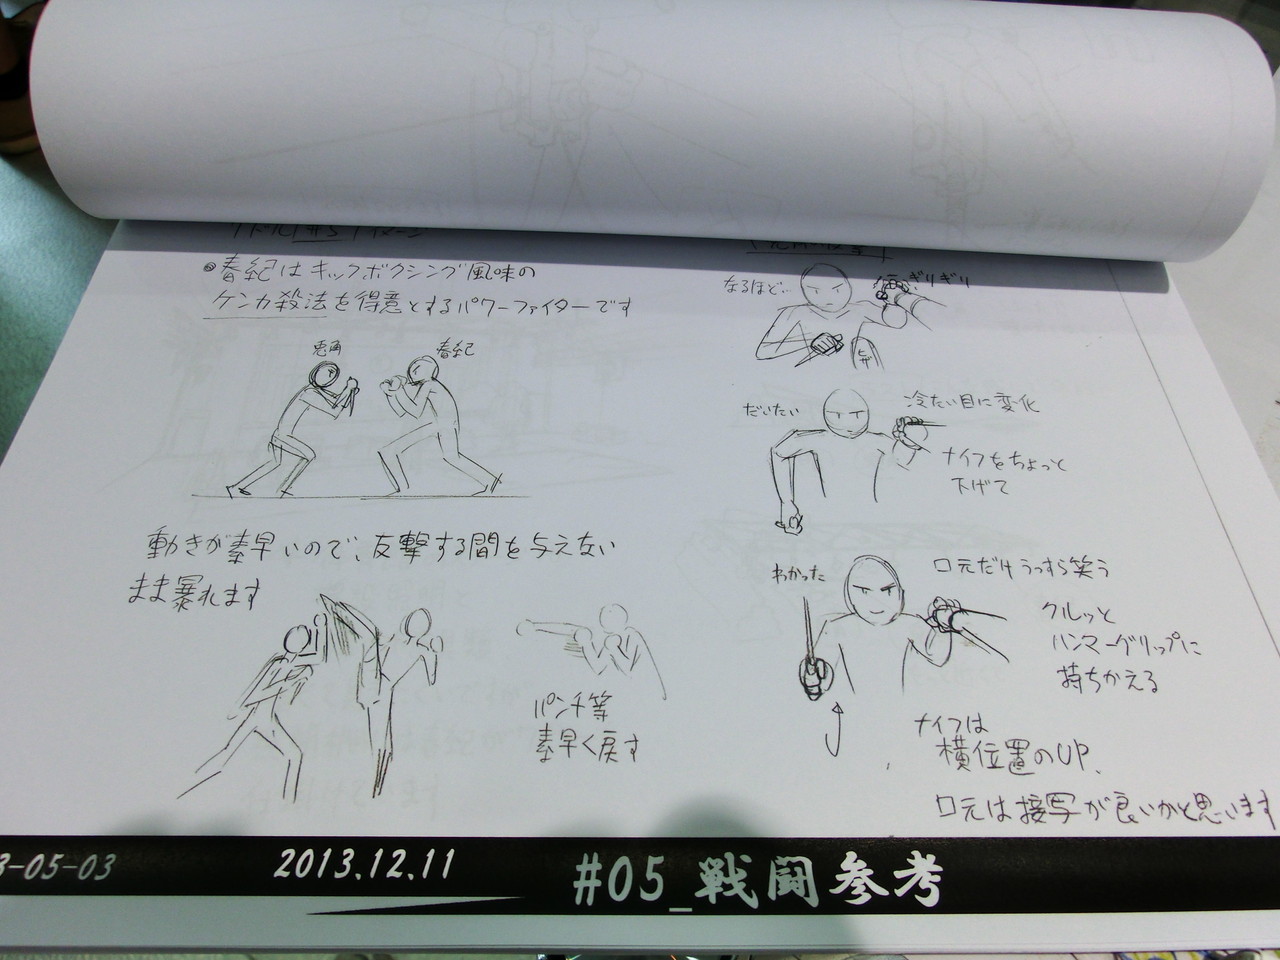 ●春紀はキックボクシング風味の
ケンカ殺法を得意とするパワーファイターです
春紀
動きが素早いので、反撃する間を与えない
まま暴れます
パンチ等
素早く戻す
なるほど…
ぎりぎり
ヒザ
だいたい
冷たい目に変化
ナイフをちょっと
下げて
わかった
口元だけうっすら笑う
クルッと
ハンマーグリップに
持ちかえる
ナイフは
横位置のUP、
口元は接写が良いかと思います
3-05-03
2013.12.11
#05_戦闘参考